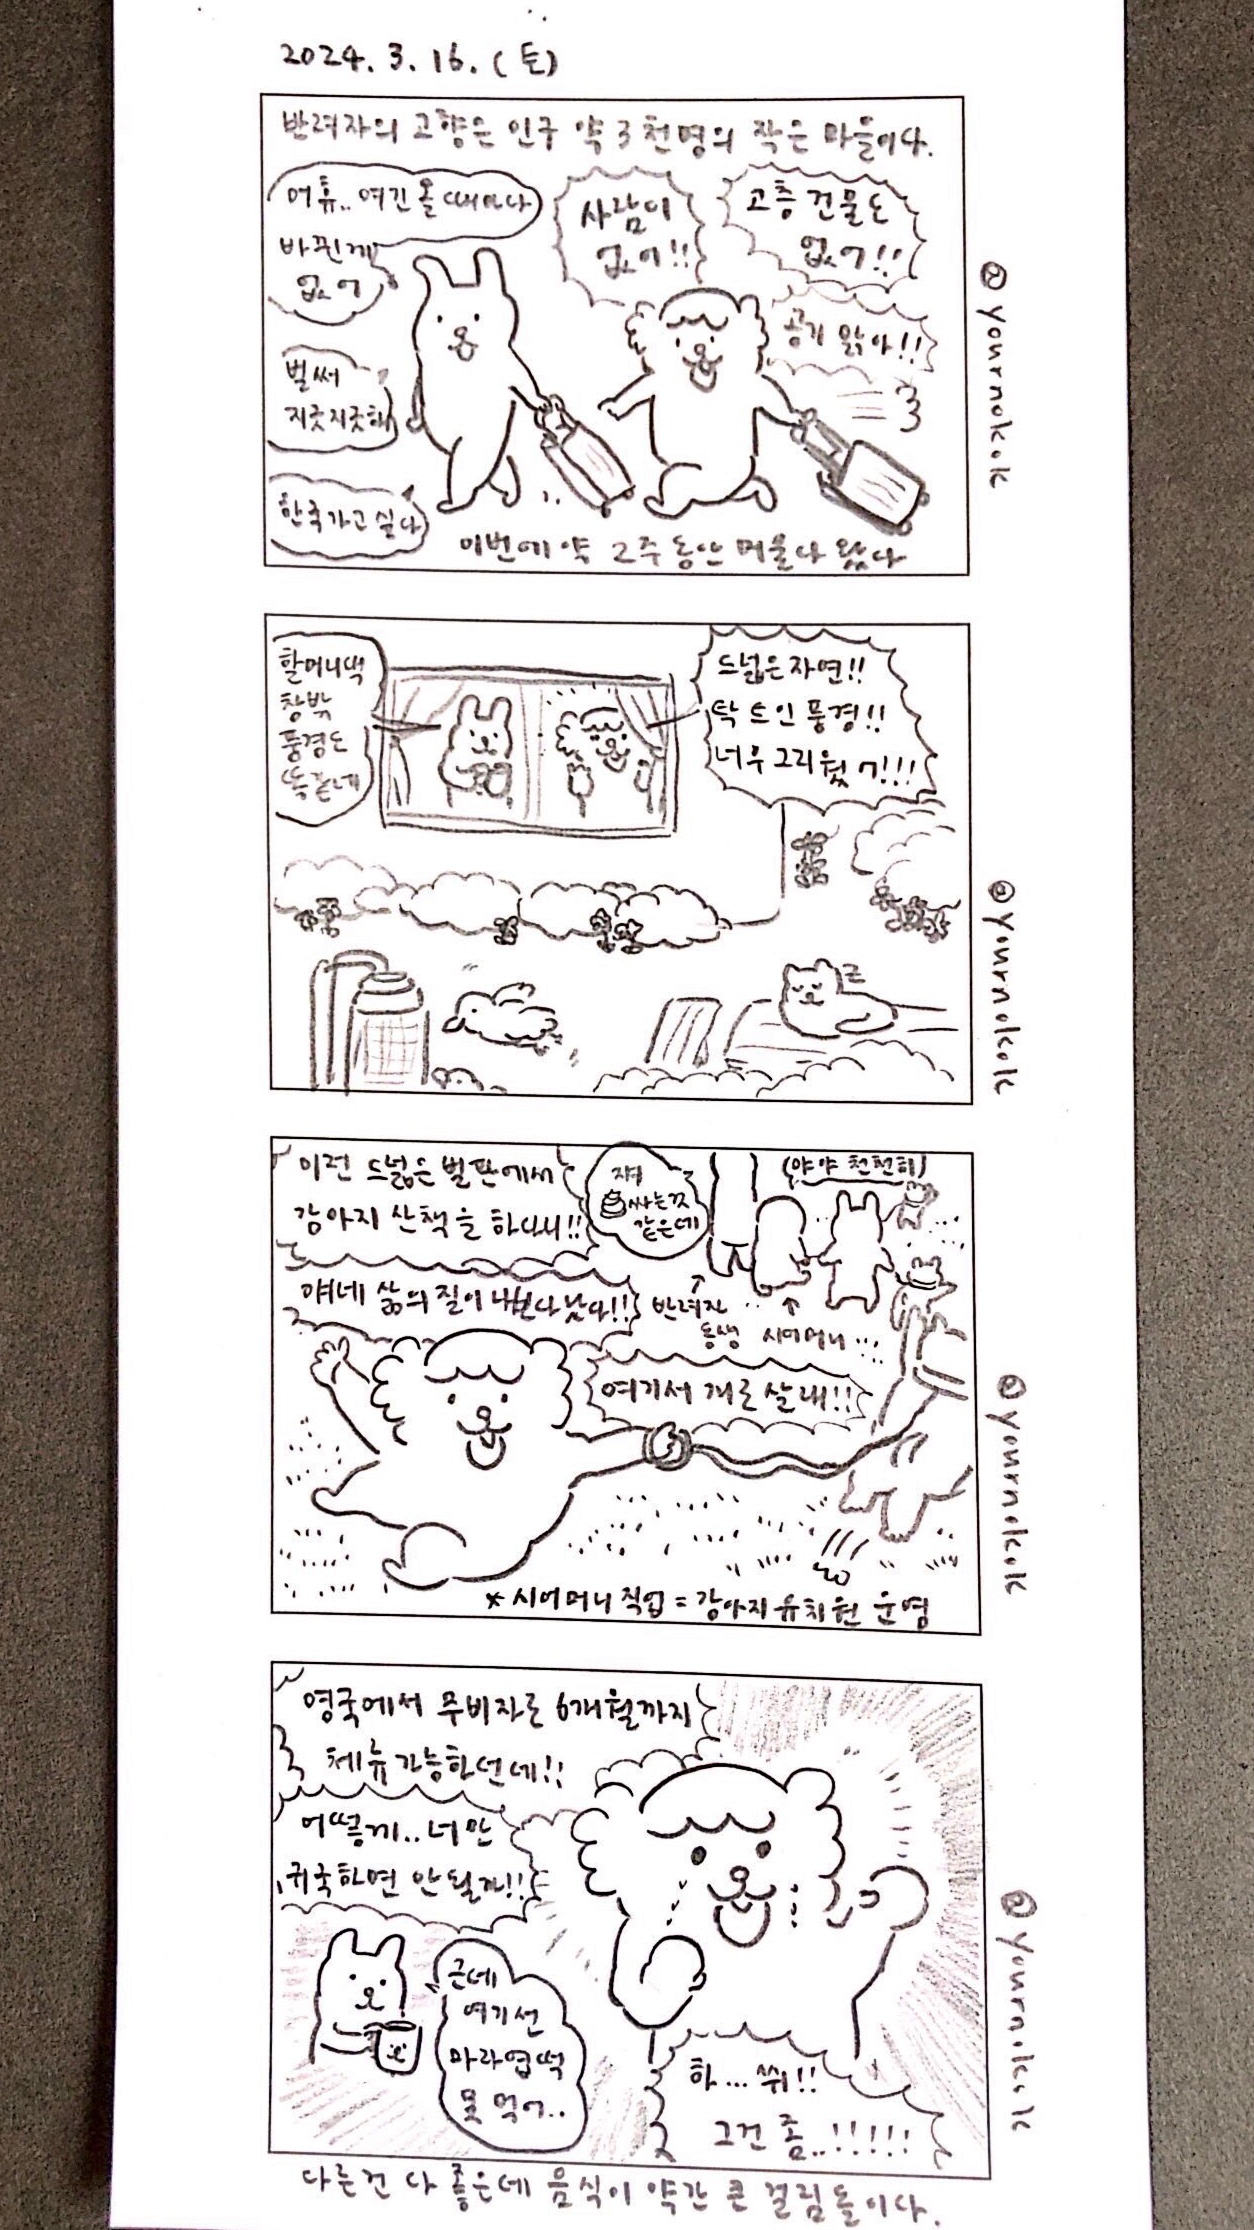 2024. 3. 16. (토)
반려자의 고향은 인구 약 3천명의 작은 마을이다.
어휴.. 여긴 올때마다
바뀐게
없어
벌써
지긋지긋해
한국가고 싶다
사람이
없어!!
고층 건물도
없어!!
공기 맑아!!
이번에 약 2주 동안 머물다 왔다
@yournokok
할머니댁
창밖
풍경도
똑같네
드넓은 자연!!
탁 트인 풍경!!
너무 그리웠어!!!
@yournokok
이런 드넓은 벌판에서
강아지 산책을 하다니!!
쟤
싸는것
같은데
(야야 천천히)
걔네 삶의 질이 나보다 낫다!!
반려자
동생
시어머니
여기서 개로 살래!!
*시어머니 직업 = 강아지 유치원 운영
@yournokok
영국에서 무비자로 6개월까지
체류 가능하던데!!
어떻게.. 너만
귀국하면 안될까!!
근데
여기선
마라엽떡
못 먹어..
하... 쒸!!
그건 좀..!!!!!
@yournokok
다른건 다 좋은데 음식이 약간 큰 걸림돌이다.